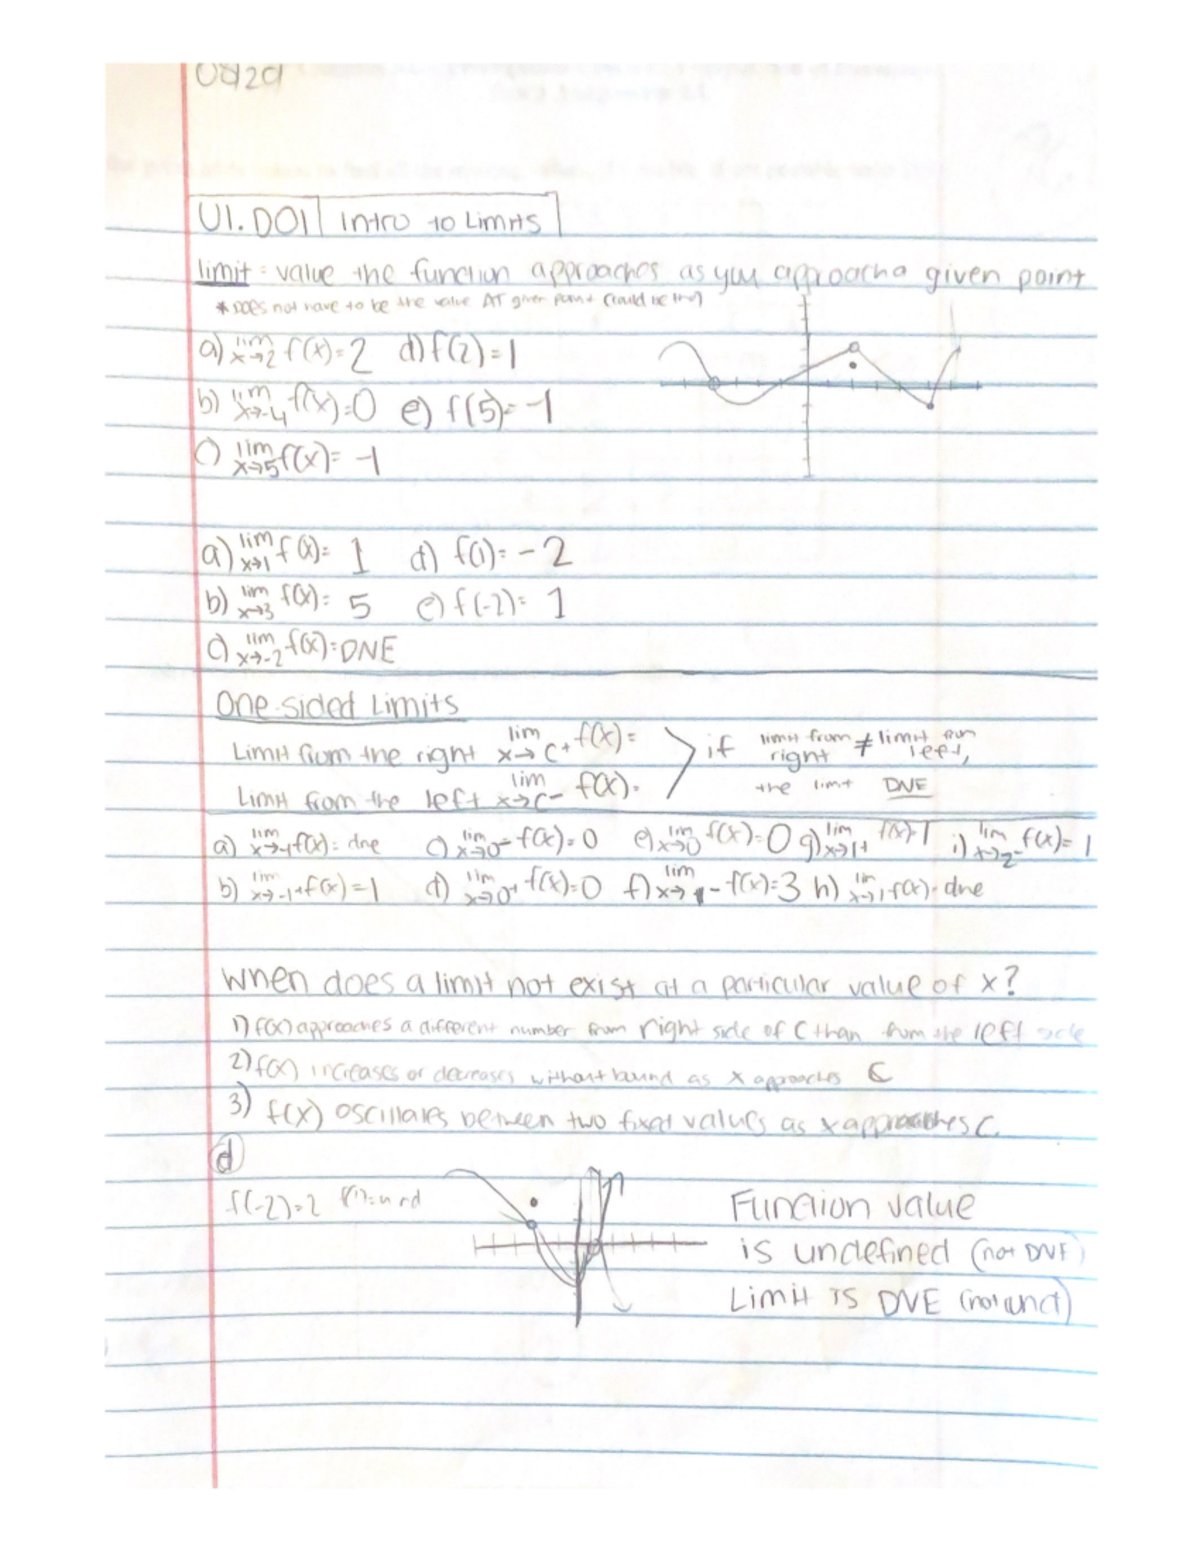 08/29
U1.D01 | Intro to Limits
limit = value the function approaches as you approach a given point
* Does not have to be the value AT given point (could be tho)
a) lim x→2 f(x)=2 d) f(2)=1
b) lim x→-4 f(x)=0 e) f(5)=-1
c) lim x→5 f(x)= -1
a) lim x→1 f(x)= 1 d) f(1)= -2
b) lim x→3 f(x)= 5 e) f(-2)= 1
c) lim x→-2 f(x)=DNE
One-sided Limits
Limit from the right lim x→c+ f(x)= if limit from right ≠ limit from left,
Limit from the left lim x→c- f(x)= the limit DNE
a) lim x→-1 f(x)= dne c) lim x→0- f(x)=0 e) lim x→0 f(x)=0 g) lim x→1+ f(x)=1 i) lim x→2- f(x)= 1
b) lim x→-1+ f(x)=1 d) lim x→0+ f(x)=0 f) lim x→1- f(x)=3 h) lim x→1 f(x)= dne
When does a limit not exist at a particular value of x?
1) f(x) approaches a different number from right side of C than from the left side
2) f(x) increases or decreases without bound as x approaches C
3) f(x) oscillates between two fixed values as x approaches C.
d
f(-2)=2 f(1)=und
Function value
is undefined (not DNE)
Limit is DNE (not und)